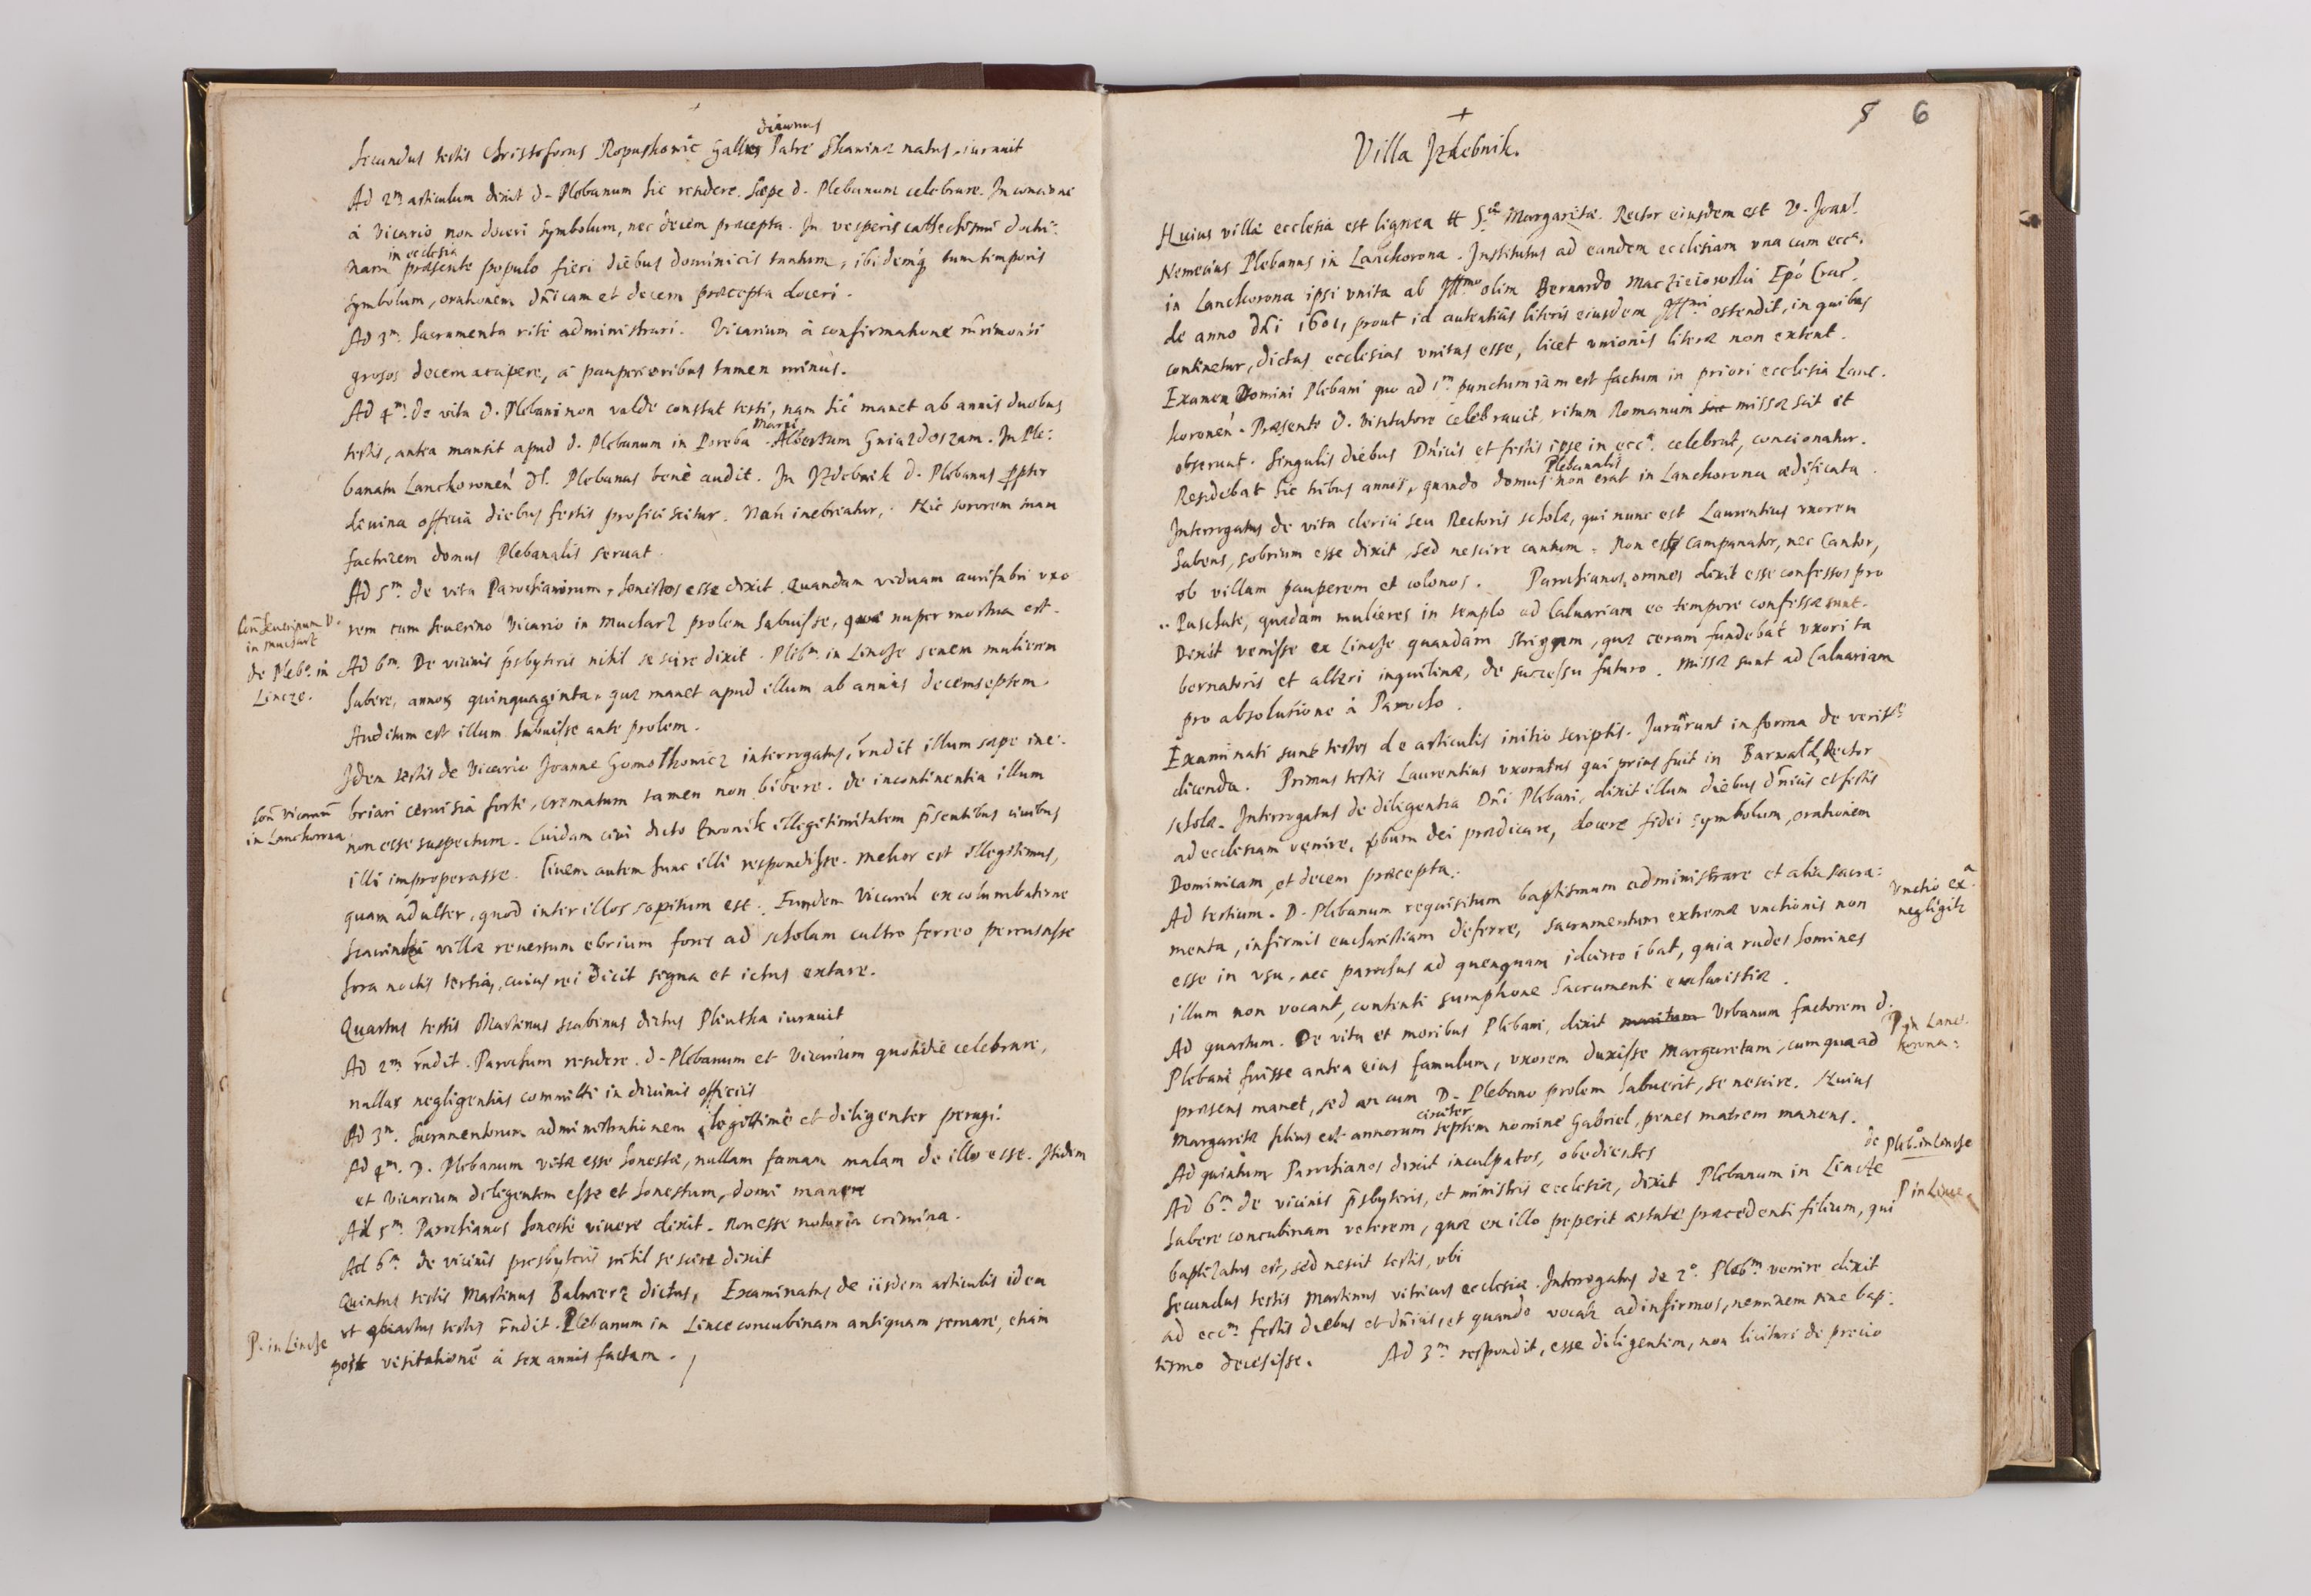 Secundus testis Christoforus Ropuskowic Gallus dictus Patre Skawina natus, iuravit
Ad 2m articulum dixit d. Plebanum hic residere. Sæpe d. Plebanum celebrare. In concione
à Vicario non doceri symbolum, nec decem præcepta. In vesperis cathechismi doctri-
nam in ecclesia præsente populo fieri diebus dominicis tantum, ibidemq tum temporis
symbolum, orationem dnicam et decem præcepta doceri.
Ad 3m Sacramenta ritè administrari. Vicarium à confirmatione mrimonii
grosos decem accipere, à pauperioribus tamen minus.
Ad 4m de vita d. Plebani non valde constat testi, nam hic manet ab annis duobus
testis, antea mansit apud d. Plebanum in Poreba Albertum Gniazdoszam. In Ple-
banatu Lanckoronen dT. Plebanus benè audit. In Jzdebnik d. Plebanus ppter
divina officia diebus festis proficiscitur. Non inebriatur. Hic sororem suam
factricem domus Plebanalis servat.
Ad 5m de vita Parochianorum, honestos esse dixit. Quandam viduam aurifabri uxo
rem cum Severino Vicario in Mucharz prolem habuisse, quæ nuper mortua est.
Con Severinum V.
in Muchart
Ad 6m. De vicinis psbyteris nihil se scire dixit. Plebm in Lincze senem mulierem
de Plebo in
Lincze.
habere, annos quinquaginta, quæ manet apud illum ab annis decemseptem.
Auditum est illum habuisse ante prolem.
Idem testis de Vicario Joanne Gomolkowicz interrogatus, rndit illum sæpe ine-
briari cervisia forti, crematum tamen non bibere. De incontinentia illum
Con Vicarium
in Lanckorona
non esse suspectum. Cuidam civi dicto Kwonik illegitimitatem psentibus civibus
illi improperasse. Civem autem hunc illi respondisse. Melior est illegitimus,
quam adulter, quod inter illos sopitum est. Eundem Vicariu ex columbatione
Scavinki villæ reversum ebrium fores ad scholam cultro ferreo percussisse
hora noctis tertia, cuius rei dicit signa et ictus extare.
Quartus testis Martinus scabinus dictus Pliutka iuravit
Ad 2m rndit. Parochum residere. d. Plebanum et Vicarium quotidie celebrare,
nullas negligentias committi in divinis officiis
Ad 3m. Sacramentorum administrationem legittimè et diligenter peragi.
Ad 4m. D. Plebanum vitæ esse honestæ, nullam famam malam de illo esse. Itidem
et Vicarium diligentem esse et honestum, domi manere
Ad 5m Parochianos honestè vivere dixit. Non esse notoria crimina.
Ad 6m de vicinis presbyteris nihil se scire dixit
Quintus testis Martinus Balwierz dictus, Examinatus de iisdem articulis idem
ut quartus testis rndit. Plebanum in Lincze concubinam antiquam servare, etiam
P. in Lincze
post visitationẽ à sex annis factam.
+
8 6
Villa Jzdebnik.
Huius villæ ecclesia est lignea tt Sæ Margaritæ. Rector eiusdem est V. Joan.
Nemecius Plebanus in Lanckorona. Institutus ad eandem ecclesiam una cum ecca.
in Lanckorona ipsi unita ab Illmo olim Bernardo Maczieiowski Epo Crac.
de anno dni 1601, prout id autenticis literis eiusdem Illmi ostendit, in quibus
continetur, dictas ecclesias unitas esse, licet unionis literæ non extent.
Examen Domini Plebani quo ad 1m punctum iam est factum in priori ecclesia Lanc-
koronen. Præsente d. Visitatore celebravit, ritum Romanum missæ scit et
observat. Singulis diebus Dnicis et festis ipse in ecca. celebrat, concionatur.
Residebat hic tribus annis, quando domus Plebanalis non erat in Lanckorona ædificata.
Interrogatus de vita clerici seu Rectoris scholæ, qui nunc est Laurentius uxorem
habens, sobrium esse dixit, sed nescire cantum. Non est campanator, nec Cantor,
ob villam pauperem et colonos. Parochianos omnes dixit esse confessos pro
Paschate, quædam mulieres in templo ad Calvariam eo tempore confessæ sunt.
Dixit venisse ex Lincze quandam strigam, quæ ceram fundebat uxori ta
bernatoris et alteri inquilinæ, de successu futuro. Missæ sunt ad Calvariam
pro absolutione à Parocho.
Examinati sunt testes de articulis initio scriptis. Jurarunt in forma de veritte
dicenda. Primus testis Laurentius uxoratus qui prius fuit in Barwald, Rector
scholæ. Interrogatus de diligentia Dni Plebani, dixit illum diebus dnicis et festis
ad ecclesiam venire, vbum dei prædicare, docere fidei symbolum, orationem
Dominicam, et decem præcepta.
Ad tertium. D. Plebanum requisitum baptismum administrare et alia sacra-
menta, infirmis eucharistiam deferre, sacramentum extremæ unctionis non
Unctio exa
negligitr
esse in usu, nec parochus ad quenquam idcirco ibat, quia rudes homines
illum non vocant, contenti sumptione Sacramenti eucharistiæ.
Ad quartum. De vita et moribus Plebani, dixit maritum Urbanum factorem d.
Plebani fuisse antea eius famulum, uxorem duxisse Margaretam, cum qua ad
P. in Lanc-
korona.
præsens manet, sed an cum D. Plebano prolem habuerit, se nescire. Huius
Margaritæ filius est annorum circiter septem nomine Gabriel, penes matrem manens.
Ad quintum Parochianos dixit inculpatos, obedientes
Ad 6m de vicinis psbyteris, et ministris ecclesiæ, dixit Plebanum in Lincze
de Plebo in Lincze
habere concubinam veterem, quæ ex illo peperit æstate præcedenti filium, qui
P in Lincze
baptizatus est, sed nescit testis, ubi
Secundus testis Martinus vitricus ecclesiæ. Interrogatus de 2o. Plebm venire dixit
ad eccm festis diebus et dnicis, et quando vocatr ad infirmos, neminem sine bap-
tismo decesisse. Ad 3m respondit, esse diligentem, non licitari de precio